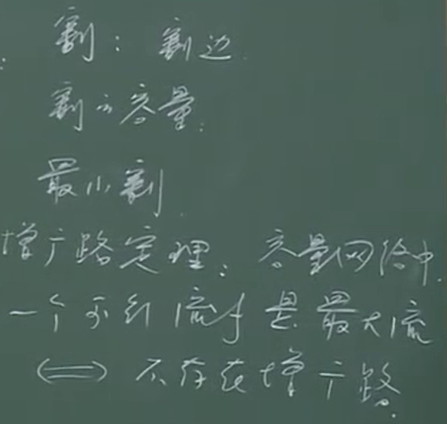 割：割边
割的容量
最小割
增广路定理：容量网络中
一个可行流f是最大流
⟺ 不存在增广路